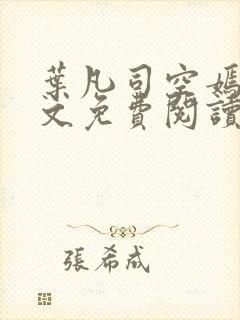 葉凡司空嫣
文免費閱讀
張希成